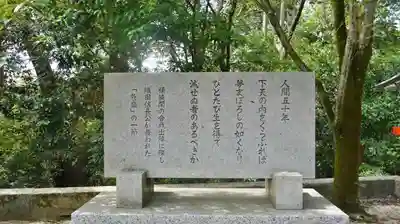 人間五十年
下天の内をくらぶれば
夢まぼろしの如くなり
ひとたび生を得て
滅せぬ者のあるべきか
桶狭間の合戦出陣に際し
織田信長公が舞われた
「敦盛」の一節